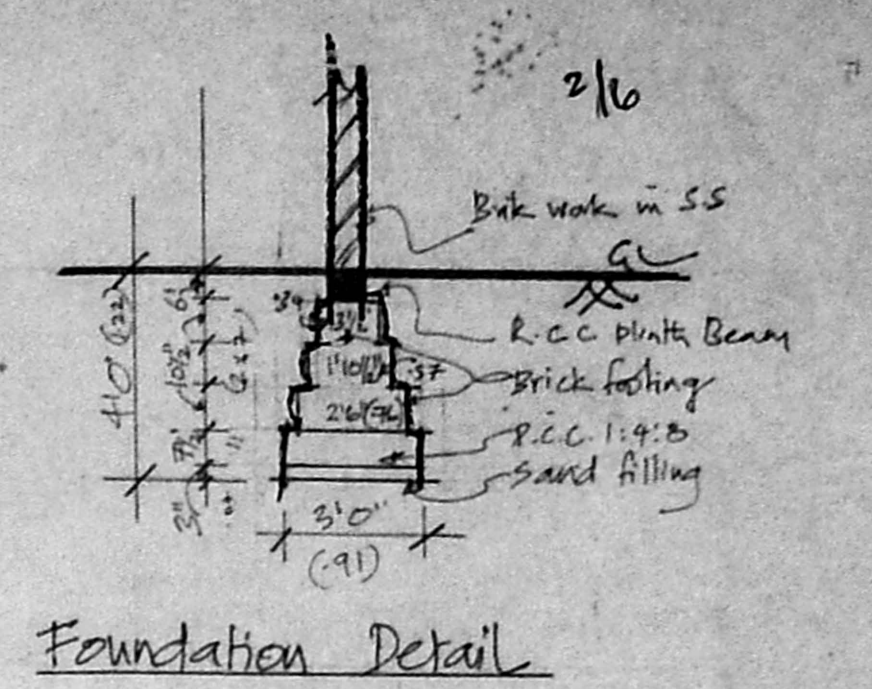 2/6
Brik work in S.S
GL
R.C.C Plinth Beam
Brick footing
P.C.C. 1:4:8
Sand filling
6"
10½"
7½"
3"
4'0"
.39
1'10½"
.57
2'6" (76)
3'0"
(.91)
Foundation Detail